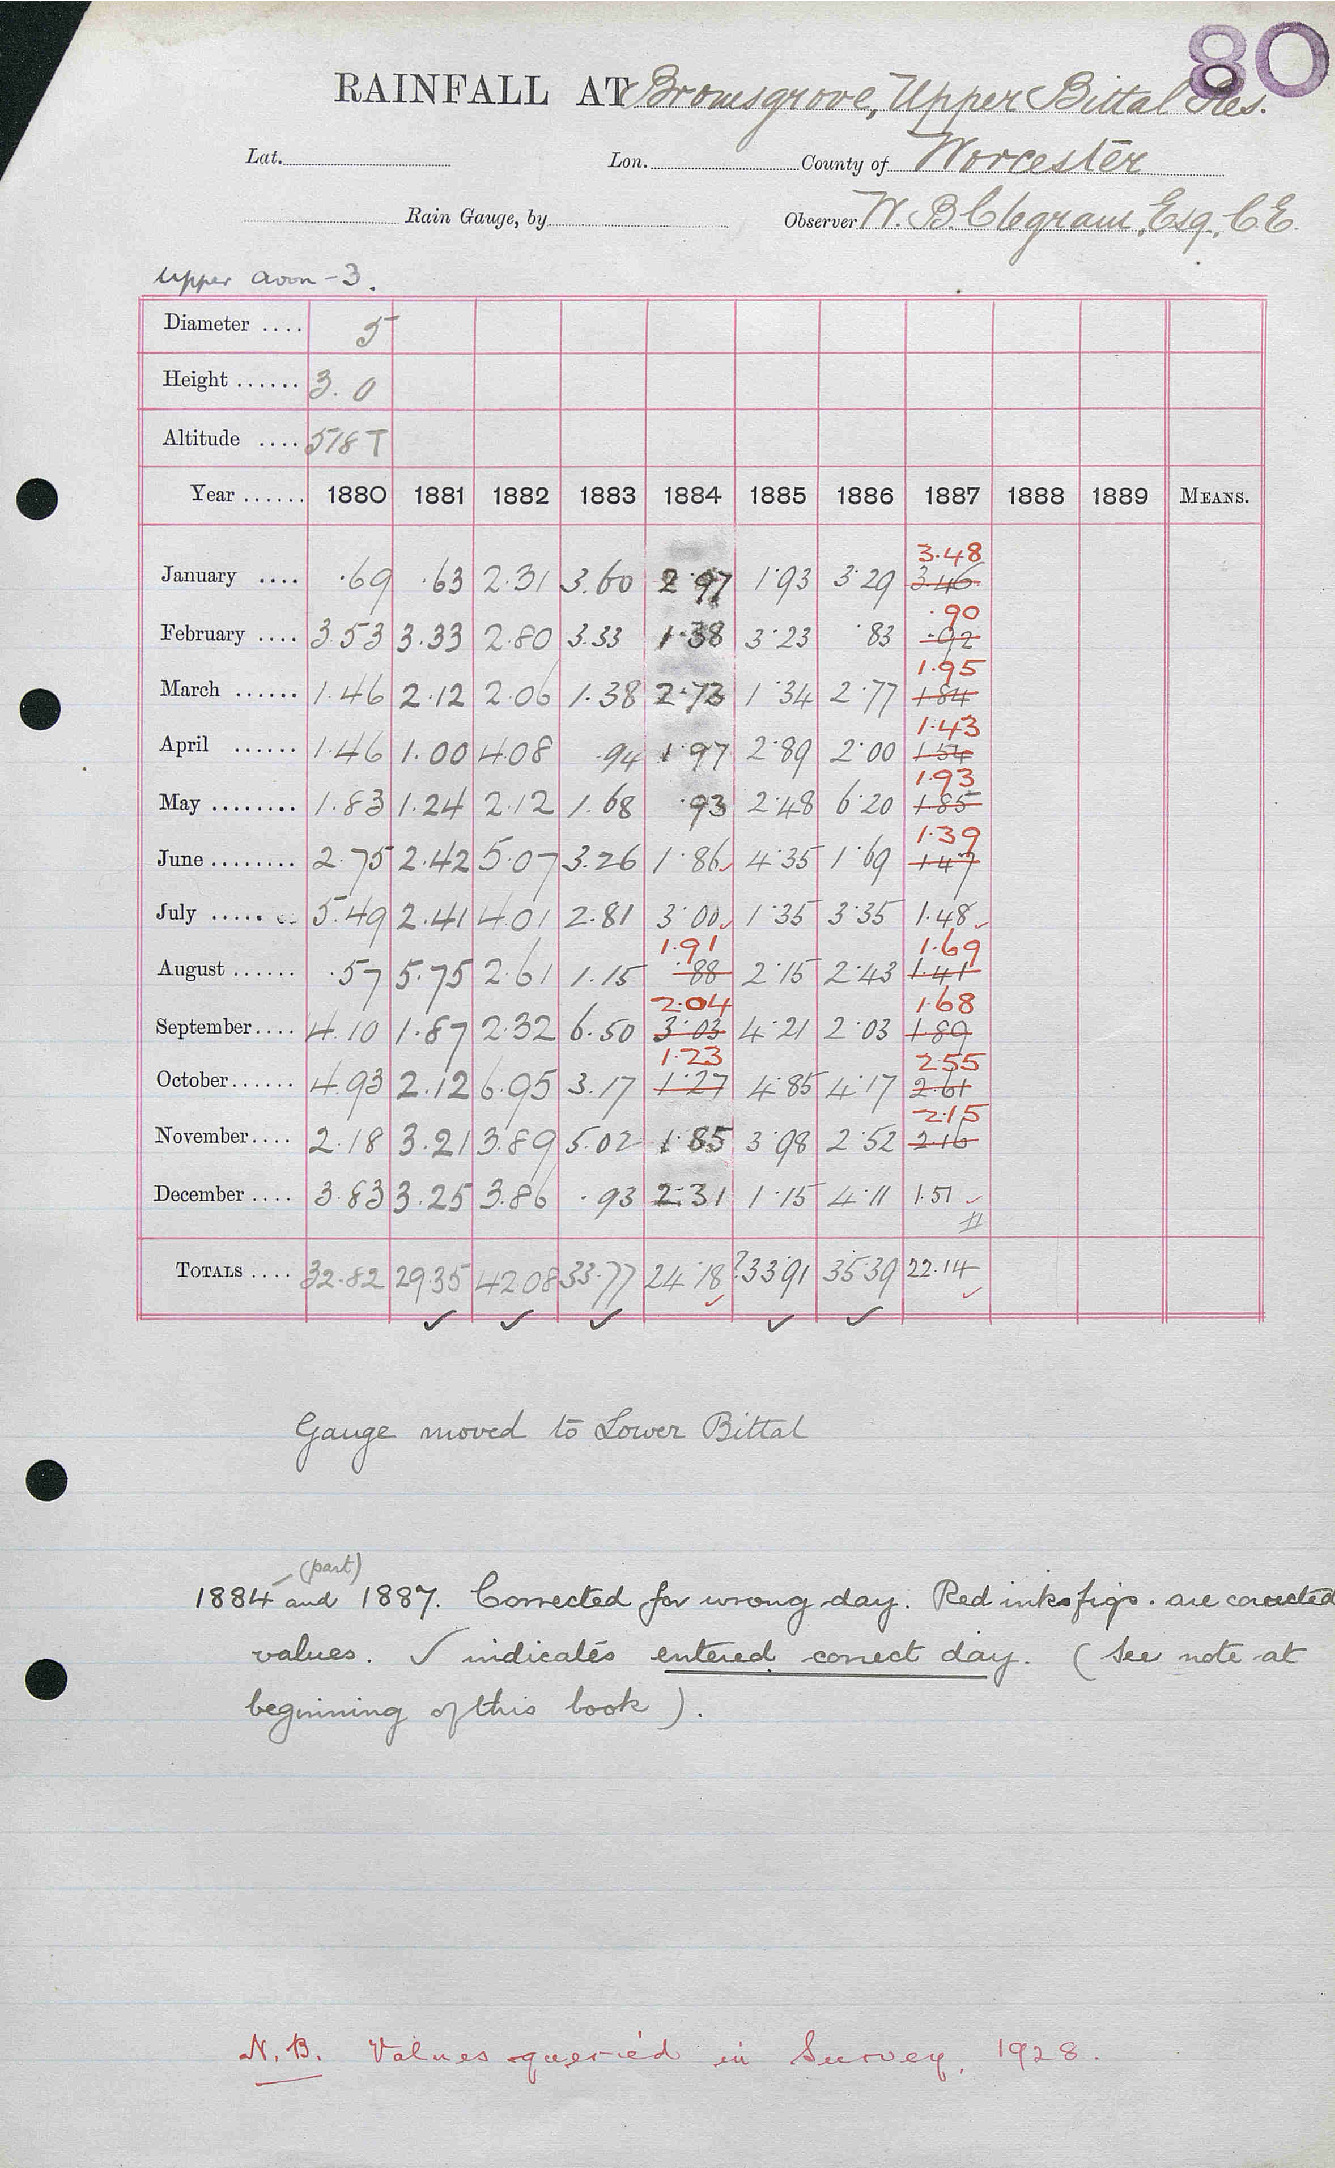 80
RAINFALL AT Bromsgrove, Upper Bittal Res.
Lat. Lon. County of Worcester
Rain Gauge, by Observer W. B. Clegram, Esq., C.E.
Upper Avon - 3.
Diameter .... 5
Height ...... 3.0
Altitude .... 518 T
Year ...... 1880 1881 1882 1883 1884 1885 1886 1887 1888 1889 MEANS.
3.48
January .... .69 .63 2.31 3.60 2.97 1.93 3.29 3.46
.90
February .... 3.53 3.33 2.80 3.33 1.38 3.23 .83 .92
1.95
March ...... 1.46 2.12 2.06 1.38 2.73 1.34 2.77 1.84
1.43
April ...... 1.46 1.00 4.08 .94 1.97 2.89 2.00 1.54
1.93
May ........ 1.83 1.24 2.12 1.68 .93 2.48 6.20 1.85
1.39
June ........ 2.75 2.42 5.07 3.26 1.86 ✓ 4.35 1.69 1.47
July ..... 5.49 2.41 4.01 2.81 3.00 ✓ 1.35 3.35 1.48 ✓
1.91 1.69
August ...... .57 5.75 2.61 1.15 .88 2.15 2.43 1.41
2.04 1.68
September .... 4.10 1.87 2.32 6.50 3.03 4.21 2.03 1.89
1.23 2.55
October ...... 4.93 2.12 6.95 3.17 1.27 4.85 4.17 2.61
2.15
November .... 2.18 3.21 3.89 5.02 1.85 3.98 2.52 2.16
December .... 3.83 3.25 3.86 .93 2.31 1.15 4.11 1.51 ✓
TOTALS .... 32.82 29.35 42.08 33.77 24.18 ✓ ?33.91 35.39 22.14 ✓
✓ ✓ ✓ ✓ ✓
Gauge moved to Lower Bittal
(part)
1884 and 1887. Corrected for wrong day. Red inks figs. are corrected
values. ✓ indicates entered correct day. (See note at
beginning of this book).
N.B. Values queried in Survey, 1928.